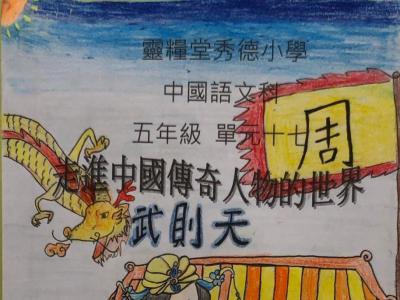 靈糧堂秀德小學
中國語文科
五年級 單元十七
周
走進中國傳奇人物的世界
武則天